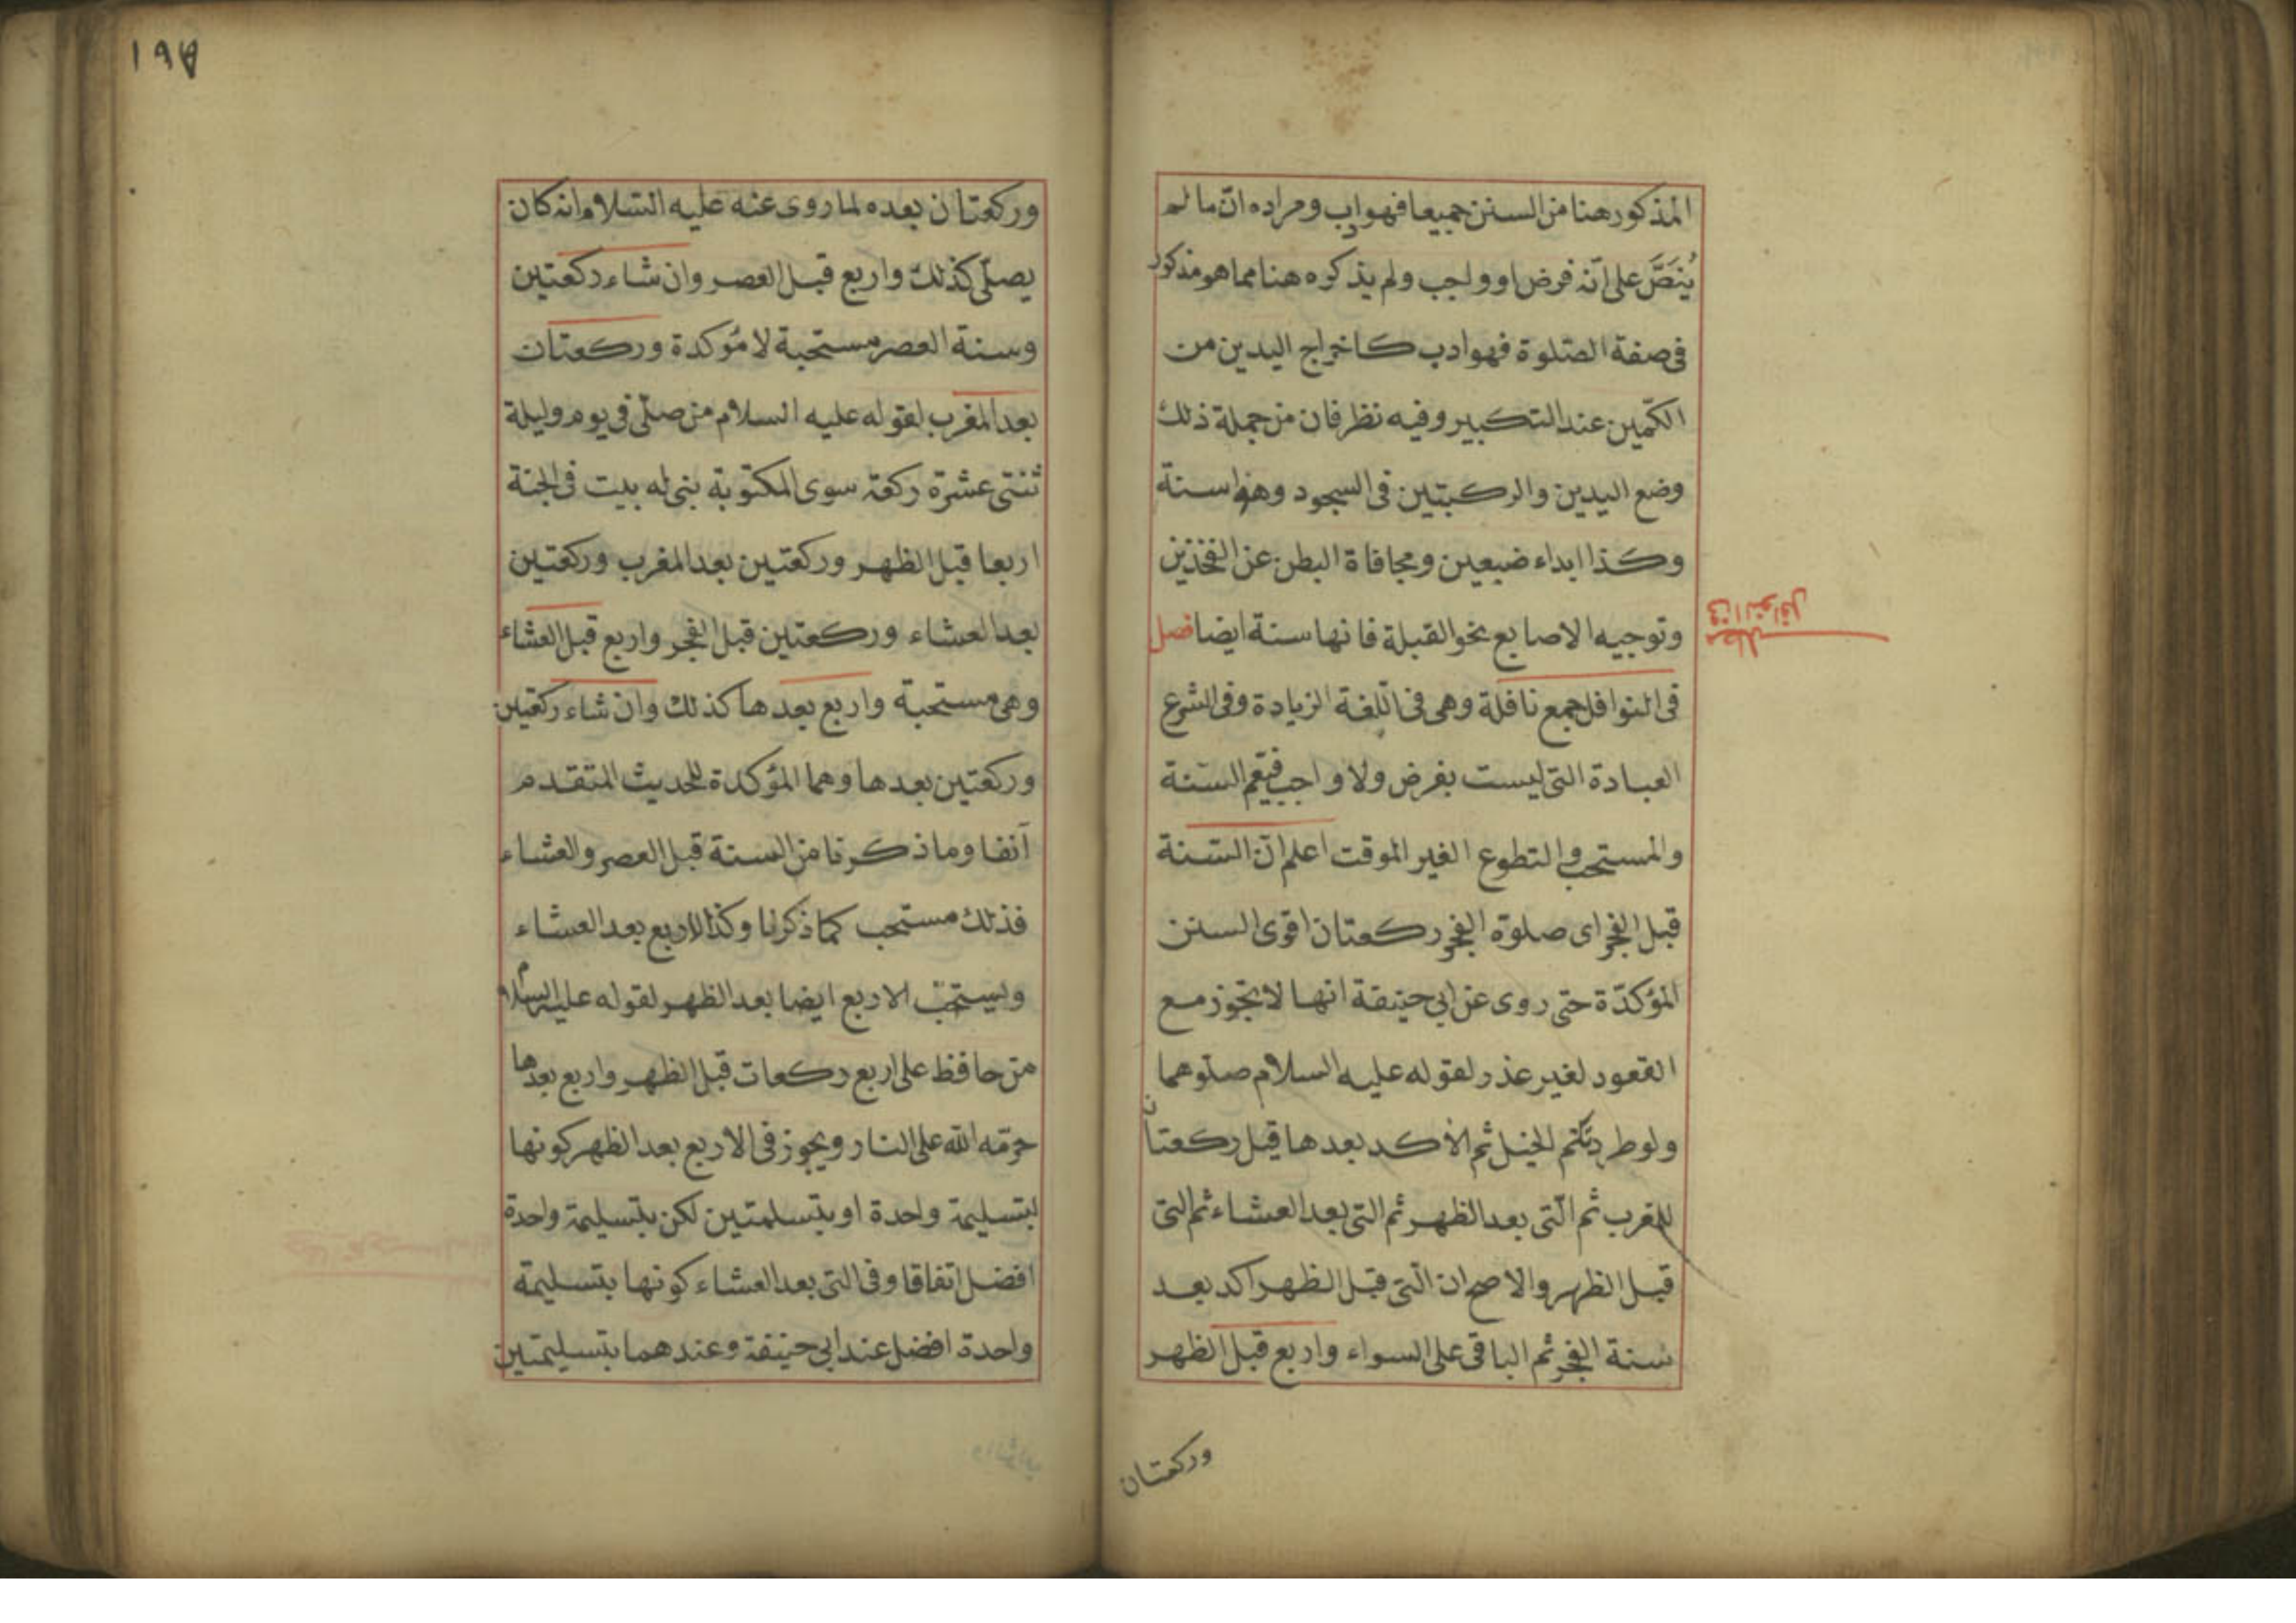 المذكور هنا من السنن جميعا فهو اب ومراده ان ما لم
يُنَصَّ على انّه فرض او واجب ولم يذكره هنا مما هو مذكور
فى صفة الصّلوة فهو ادب كاخراج اليدين من
الكمّين عند التكبير وفيه نظر فان من جملة ذلك
وضع اليدين والركبتين فى السجود وهو سنة
وكذا ابداء ضبعين ومجافاة البطن عن الفخذين
وتوجيه الاصابع نحو القبلة فانها سنة ايضا فصل
مطلب
فى النوافل
فى النوافل جمع نافلة وهى فى اللّغة الزيادة وفى الشرع
العبادة التى ليست بفرض ولا واجب فيعم السّنة
والمستحب والتطوع الغير الموقت اعلم انّ السّنة
قبل الفجر اى صلوة الفجر ركعتان اقوى السنن
المؤكدّة حتى روى عن ابى حنيفة انها لا تجوز مع
القعود لغير عذر لقوله عليه السلام صلّوهما
ولو طردتكم الخيل ثم الآكد بعدها قيل ركعتان
المغرب ثم الّتى بعد الظهر ثم التى بعد العشاء ثم التى
قبل الظهر والاصح ان الّتى قبل الظهر اكد بعد
سنة الفجر ثم الباقى على السواء واربع قبل الظهر
وركعتان
١٩٨
وركعتان بعده لما روى عنه عليه السّلام انه كان
يصلّى كذلك واربع قبل العصر وان شاء ركعتين
وسنة العصر مستحبة لا مؤكدة وركعتان
بعد المغرب لقوله عليه السلام من صلّى فى يوم وليلة
ثنتى عشرة ركعة سوى المكتوبة بنى له بيت فى الجنة
اربعا قبل الظهر وركعتين بعد المغرب وركعتين
بعد العشاء وركعتين قبل الفجر واربع قبل العشاء
وهى مستحبة واربع بعدها كذلك وان شاء ركعتين
وركعتين بعدها وهما المؤكدة للحديث المتقدم
آنفا وما ذكرنا من السنة قبل العصر والعشاء
فذلك مستحب كما ذكرنا وكذا الاربع بعد العشاء
ويستحبّ الاربع ايضا بعد الظهر لقوله عليه السلام
من حافظ على اربع ركعات قبل الظهر واربع بعدها
حرّمه الله على النار ويجوز فى الاربع بعد الظهر كونها
بتسليمة واحدة او بتسلمتين لكن بتسليمة واحدة
افضل اتفاقا وفى التى بعد العشاء كونها بتسليمة
واحدة افضل عند ابى حنيفة وعندهما بتسليمتين